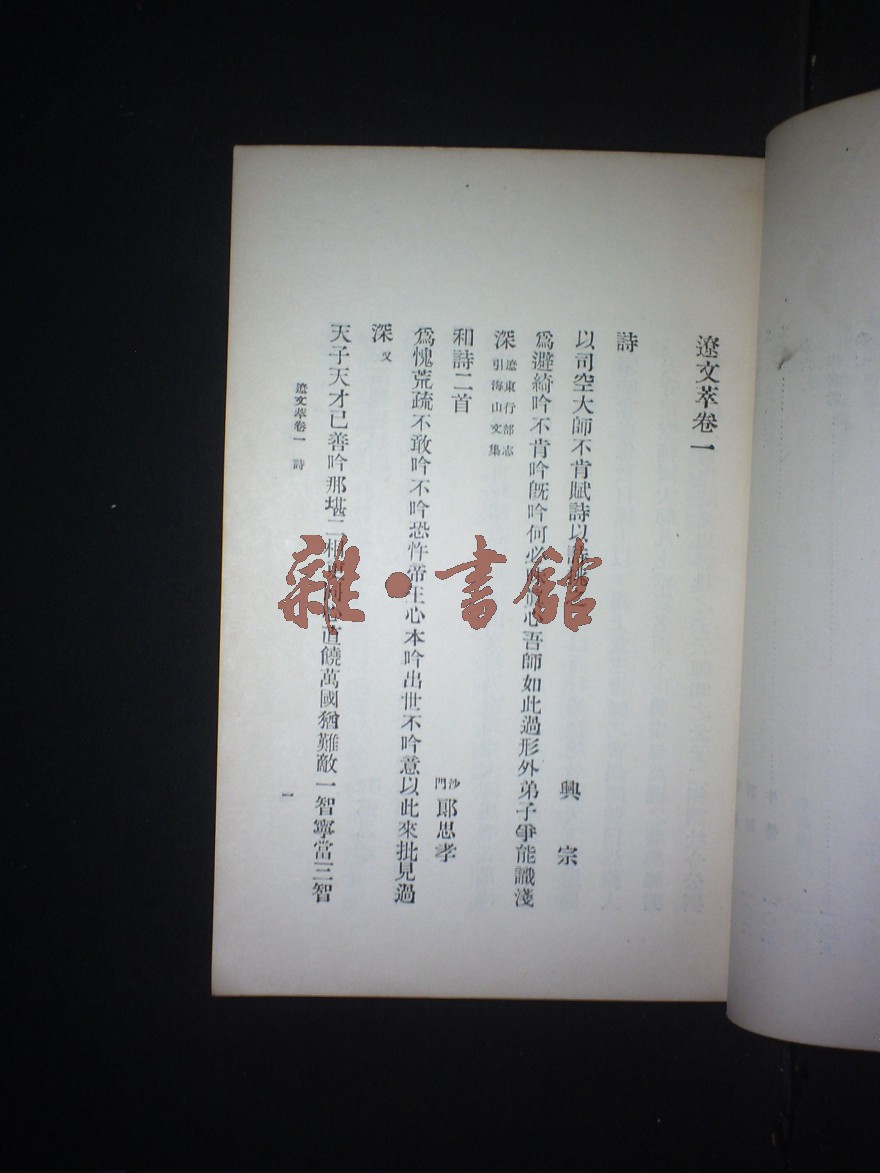 遼文萃卷一
詩
以司空大師不肯賦詩以詩
興宗
為避綺吟不肯吟既吟何必心吾師如此過形外弟子爭能識淺
深 遼東行部志引海山文集
和詩二首
沙門 郎思孝
為愧荒疏不敢吟不吟恐忤帝王心本吟出世不吟意以此來批見過
深 又
天子天才已善吟那堪二相直饒萬國猶難敵一智寧當三智
遼文萃卷一 詩
一
雜·書館